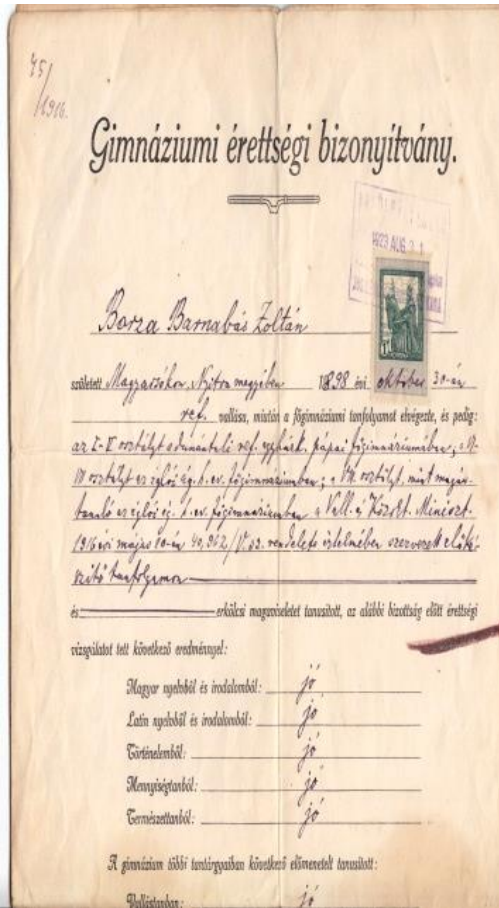 75/1916.
Gimnáziumi érettségi bizonyítvány.
1923 AUG 31
Borza Barnabás Zoltán
született Magyarsókon, Nyitra megyében 1898 évi október 30-án
ref. vallású, miután a főgimnáziumi tanfolyamot elvégezte, és pedig:
az I-V osztályt a dunántúli ref. egyházk. pápai főgimnáziumában; a VI-
VII osztályt az iglói ág. h. ev. főgimnáziumban; a VIII. osztályt, mint magán-
tanuló az iglói ág. h. ev. főgimnáziumban a Vall. és Közokt. Miniszt.
1916 évi május 10-én 40,962/V. sz. rendelete értelmében szervezett előké-
szítő tanfolyamon
és erkölcsi magaviseletet tanusított, az alábbi bizottság előtt érettségi
vizsgálatot tett következő eredménnyel:
Magyar nyelvből és irodalomból: jó
Latin nyelvből és irodalomból: jó
Történelemből: jó
Mennyiségtanból: jó
Természettanból: jó
A gimnázium többi tantárgyaiban következő előmenetelt tanusított:
Vallástanban: jó